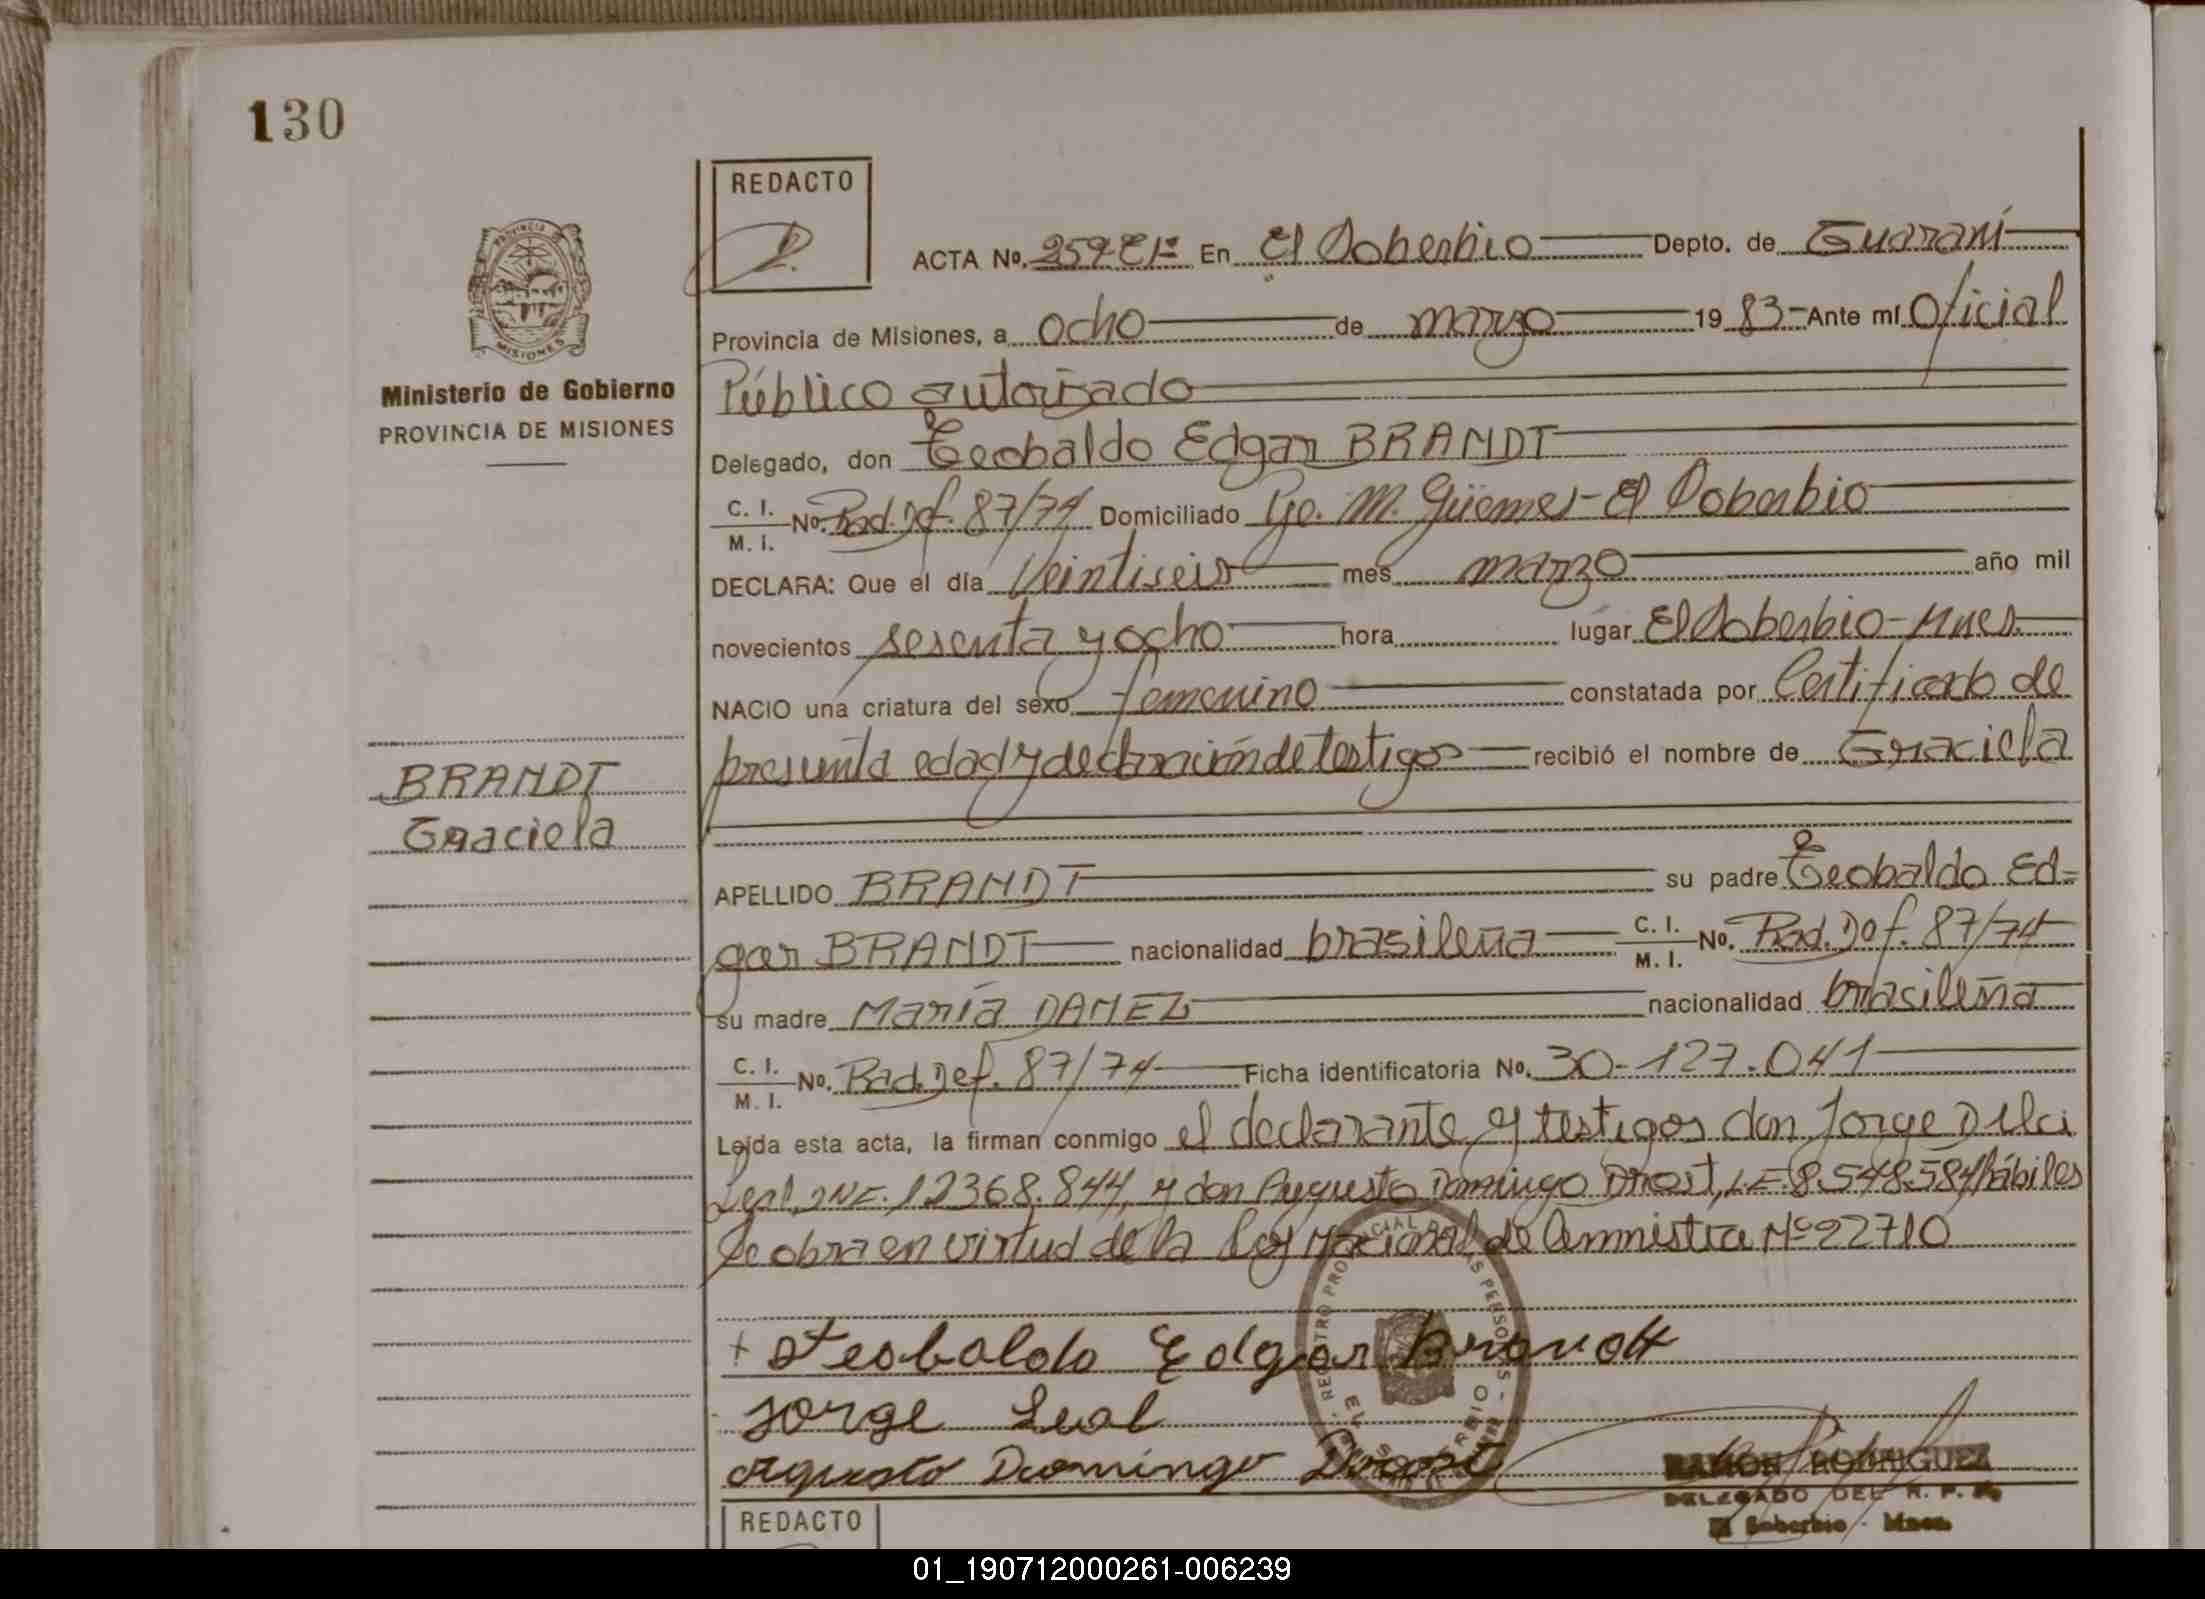 130
REDACTO
ACTA No. 259 En El Soberbio Depto. de Guaraní
Provincia de Misiones, a ocho de marzo 19 83 Ante mí Oficial
Público autorizado
Delegado, don Teobaldo Edgar BRANDT
C. I. M. I. No. Rad. Def. 87/74 Domiciliado Pje. M. Güemes - El Soberbio
DECLARA: Que el día veintiseis mes marzo año mil
novecientos sesenta y ocho hora lugar El Soberbio - Mnes.
NACIO una criatura del sexo femenino constatada por Certificado de
presunta edad y declaración de testigos recibió el nombre de Graciela
APELLIDO BRANDT su padre Teobaldo Ed=
gar BRANDT nacionalidad brasileña C. I. M. I. No. Rad. Def. 87/74
su madre María DAMEZ nacionalidad brasileña
C. I. M. I. No. Rad. Def. 87/74 Ficha identificatoria No. 30-127.041
Leída esta acta, la firman conmigo el declarante y testigos don Jorge
Leal, 12368.844, y don Augusto Domingo Drost, L.E. 8.548.584 hábiles
Se obra en virtud de la Ley Nacional de Amnistia Nº 22710
+ Teobaldo Edgar Brandt
Jorge Leal
Agusto Domingo Drost
RAMON RODRIGUEZ
DELEGADO DEL R. P. P.
El Soberbio - Mnes.
REGISTRO PROVINCIAL DE LAS PERSONAS - EL SOBERBIO
PROVINCIA DE MISIONES
Ministerio de Gobierno
PROVINCIA DE MISIONES
BRANDT
Graciela
REDACTO
01_190712000261-006239